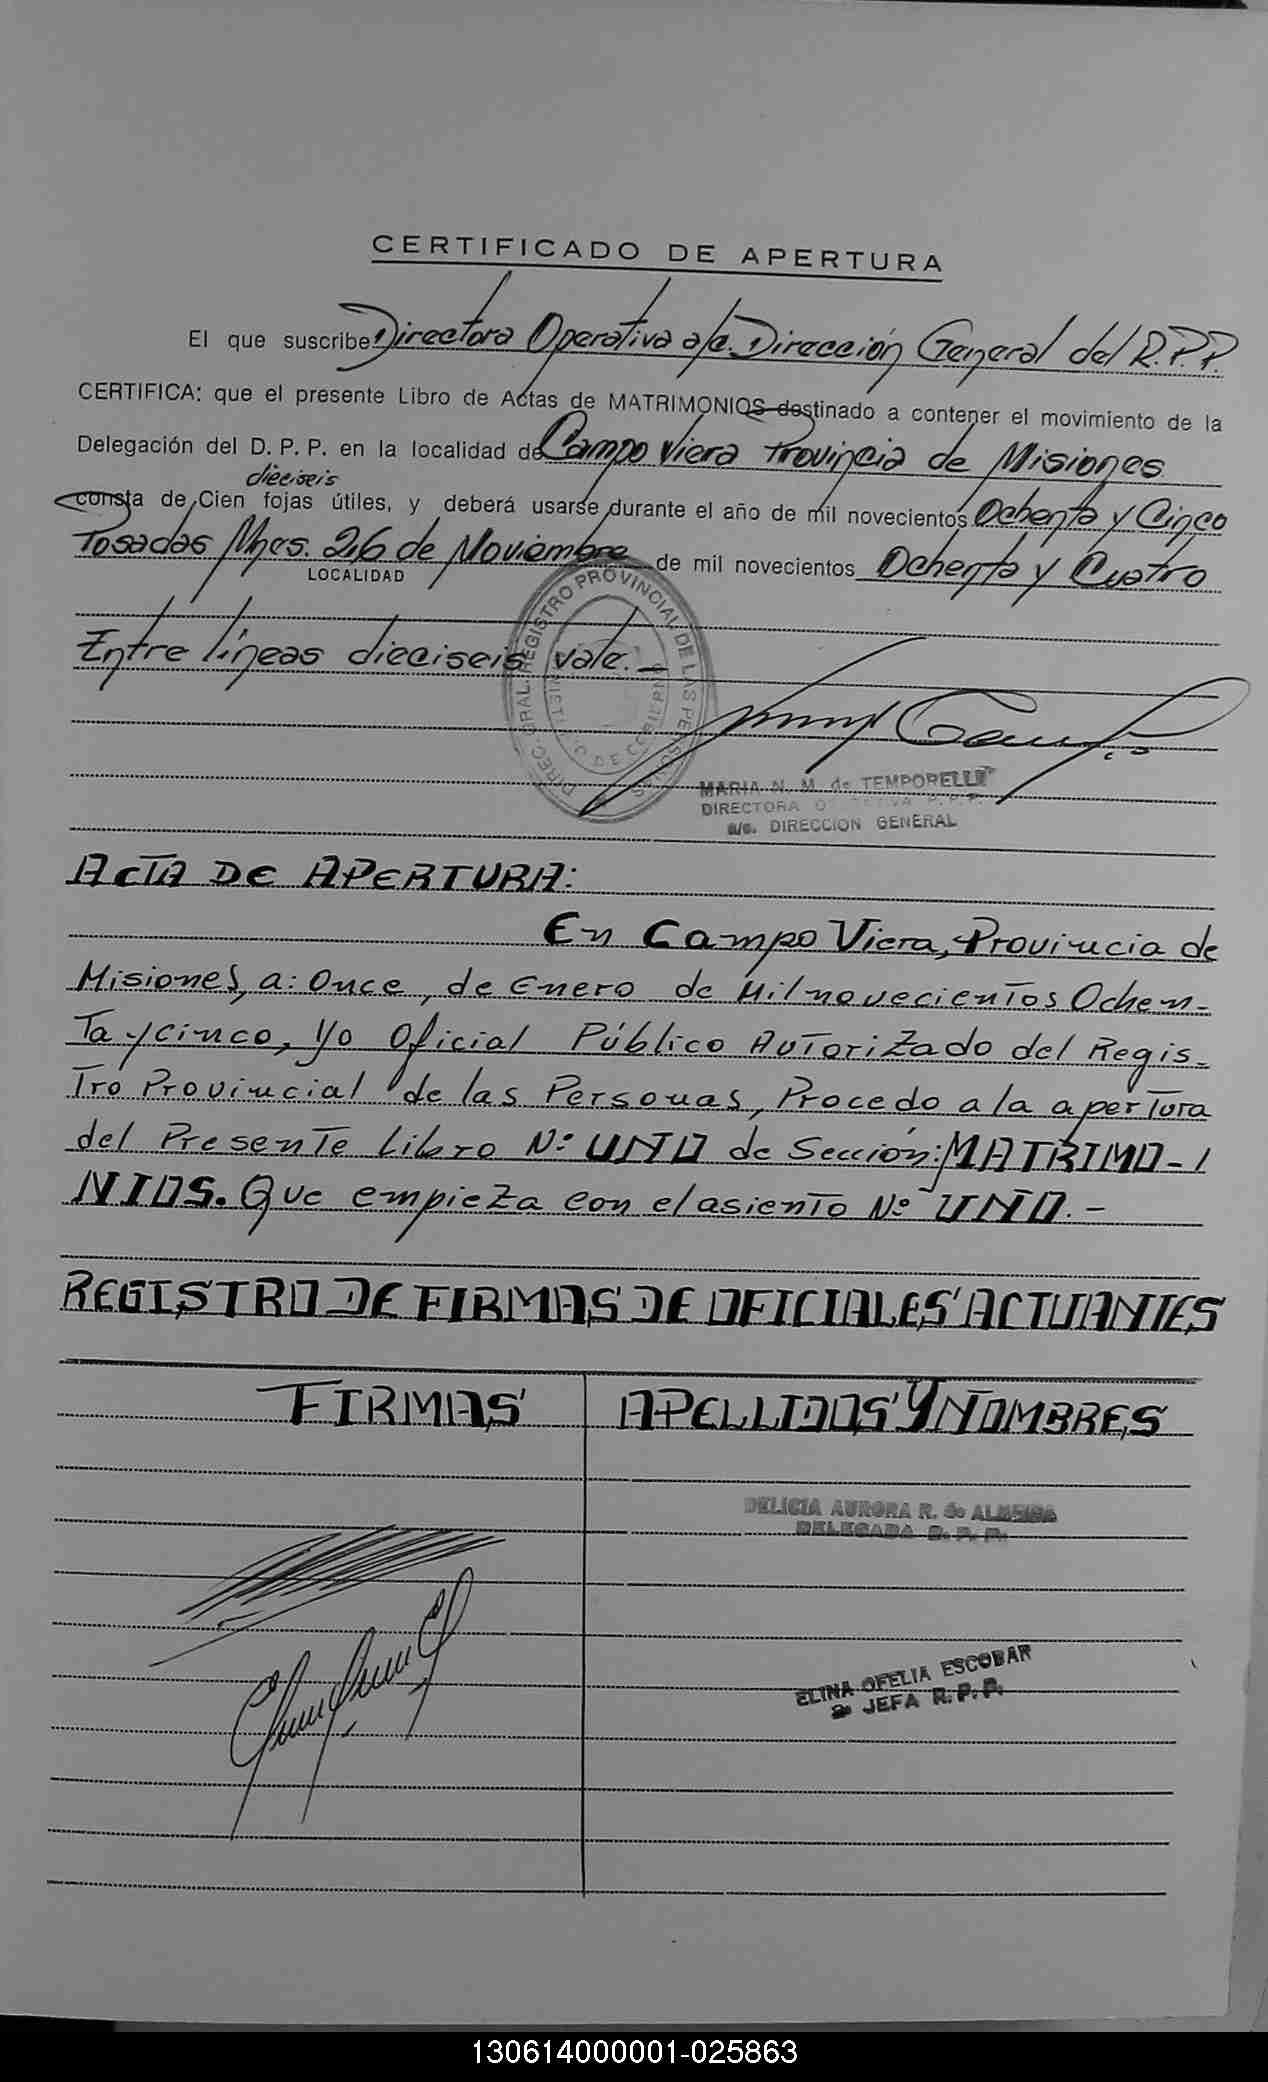 CERTIFICADO DE APERTURA
El que suscribe Directora Operativa a/c. Dirección General del R.P.P.
CERTIFICA: que el presente Libro de Actas de MATRIMONIOS destinado a contener el movimiento de la
Delegación del D. P. P. en la localidad de Campo Viera Provincia de Misiones
dieciseis
consta de Cien fojas útiles, y deberá usarse durante el año de mil novecientos Ochenta y Cinco
Posadas Mnes. 26 de Noviembre de mil novecientos Ochenta y Cuatro
LOCALIDAD
Entre líneas dieciseis vale.-
DIREC. GRAL. REGISTRO PROVINCIAL DE LAS PERSONAS
MARIA N. M. de TEMPORELLI
DIRECTORA R.P.P.
a/c. DIRECCION GENERAL
ACTA DE APERTURA:
En Campo Viera, Provincia de
Misiones, a: Once, de Enero de Milnovecientos Ochen-
Ta y cinco, yo Oficial Público Autorizado del Regis-
Tro Provincial de las Personas, Procedo a la apertura
del Presente Libro N° UNO de Sección: MATRIMO-
NIOS. Que empieza con el asiento N° UNO.-
REGISTRO DE FIRMAS DE OFICIALES ACTUANTES
FIRMAS APELLIDOS Y NOMBRES
DELICIA AURORA R. de ALMEIDA
DELEGADA R. P. P.
ELINA OFELIA ESCOBAR
JEFA R. P. P.
130614000001-025863